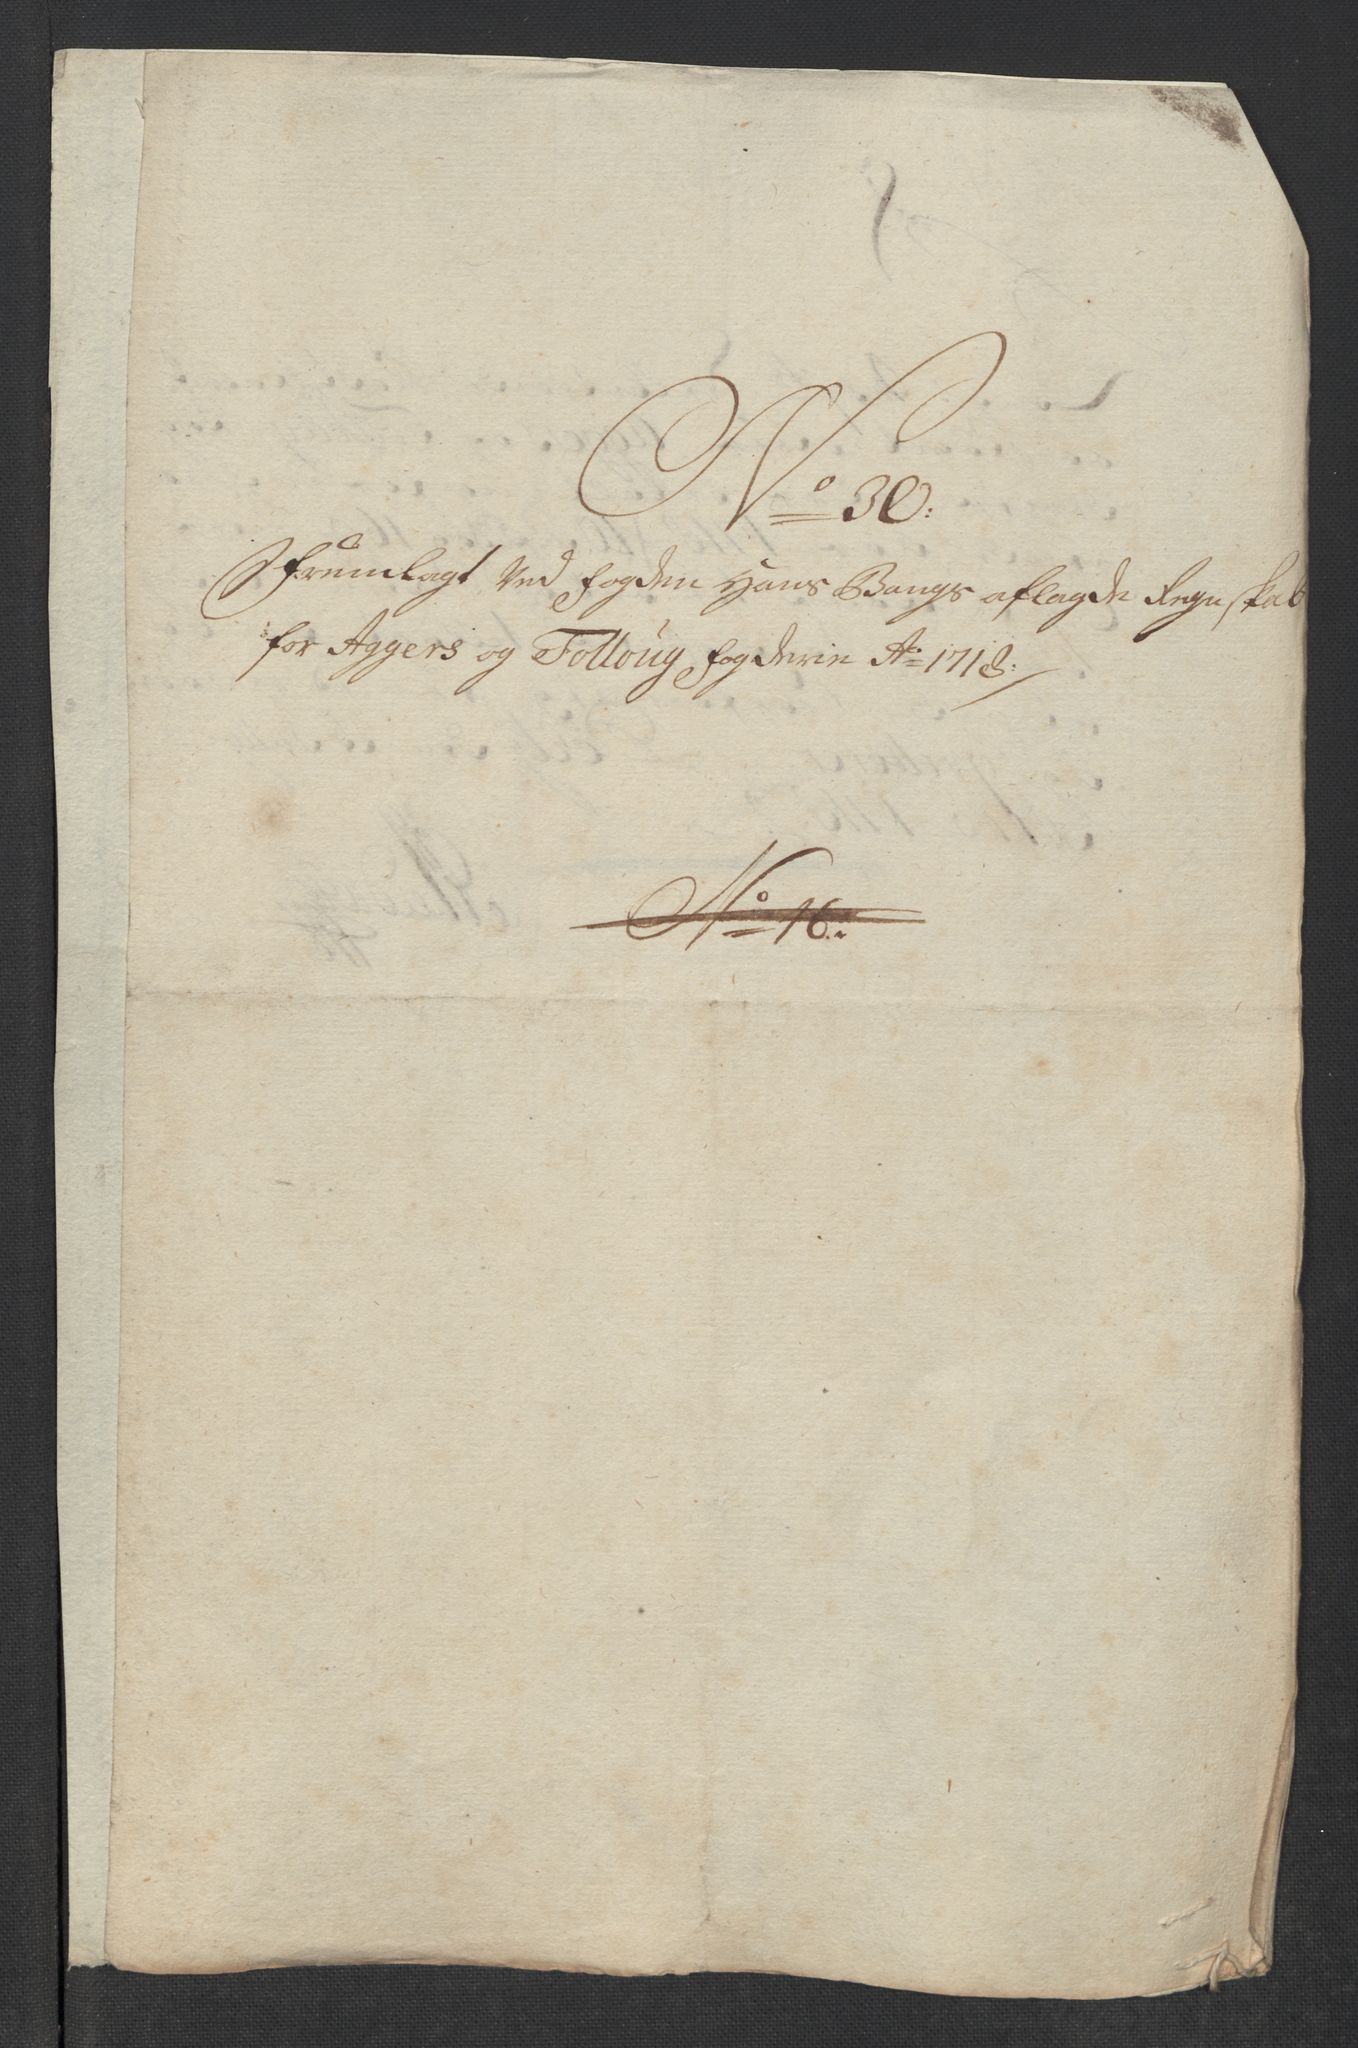 No 30:
Fremlagt Ved fogden Hans Bangs aflagde Regnskab
for Aggers og Folloug fogderie Ao 1718:
No 16: